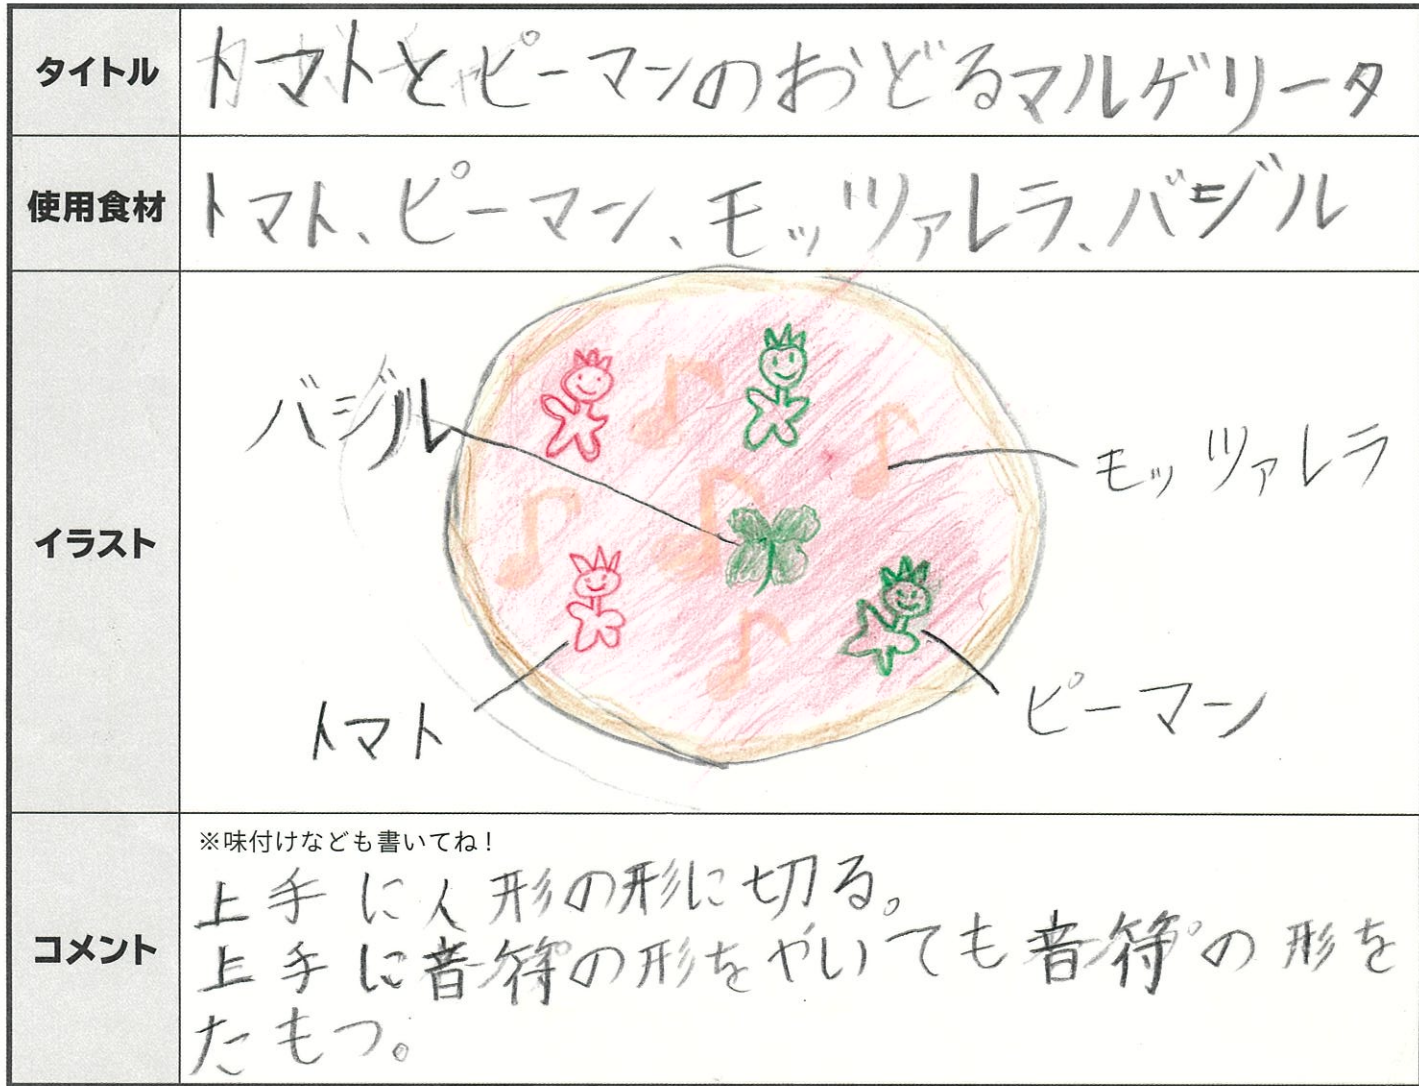 タイトル
トマトとピーマンのおどるマルゲリータ
使用食材
トマト、ピーマン、モッツァレラ、バジル
イラスト
バジル
モッツァレラ
トマト
ピーマン
コメント
※味付けなども書いてね！
上手に人形の形に切る。
上手に音符の形をやいても音符の形を
たもつ。